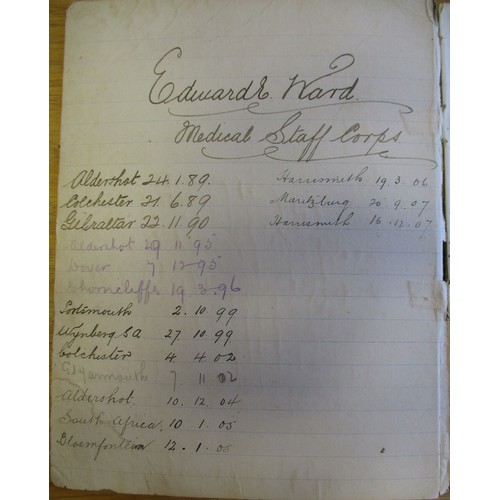 Edward E. Ward.
Medical Staff Corps
Aldershot 24.1.89.
Colchester 21.6.89
Gibraltar 22.11.90
Aldershot 29 11 95
Dover 7 12 95
Shorncliffe 19 3.96
Portsmouth 2.10.99
Wynberg SA 27.10.99
Colchester 4 4 02
Gt Yarmouth 7 11 02
Aldershot. 10.12.04
South Africa, 10.1.05
Bloemfontein 12.1.05
Harrismith 19.3.06
Maritzburg 20.9.07
Harrismith 16.12.07